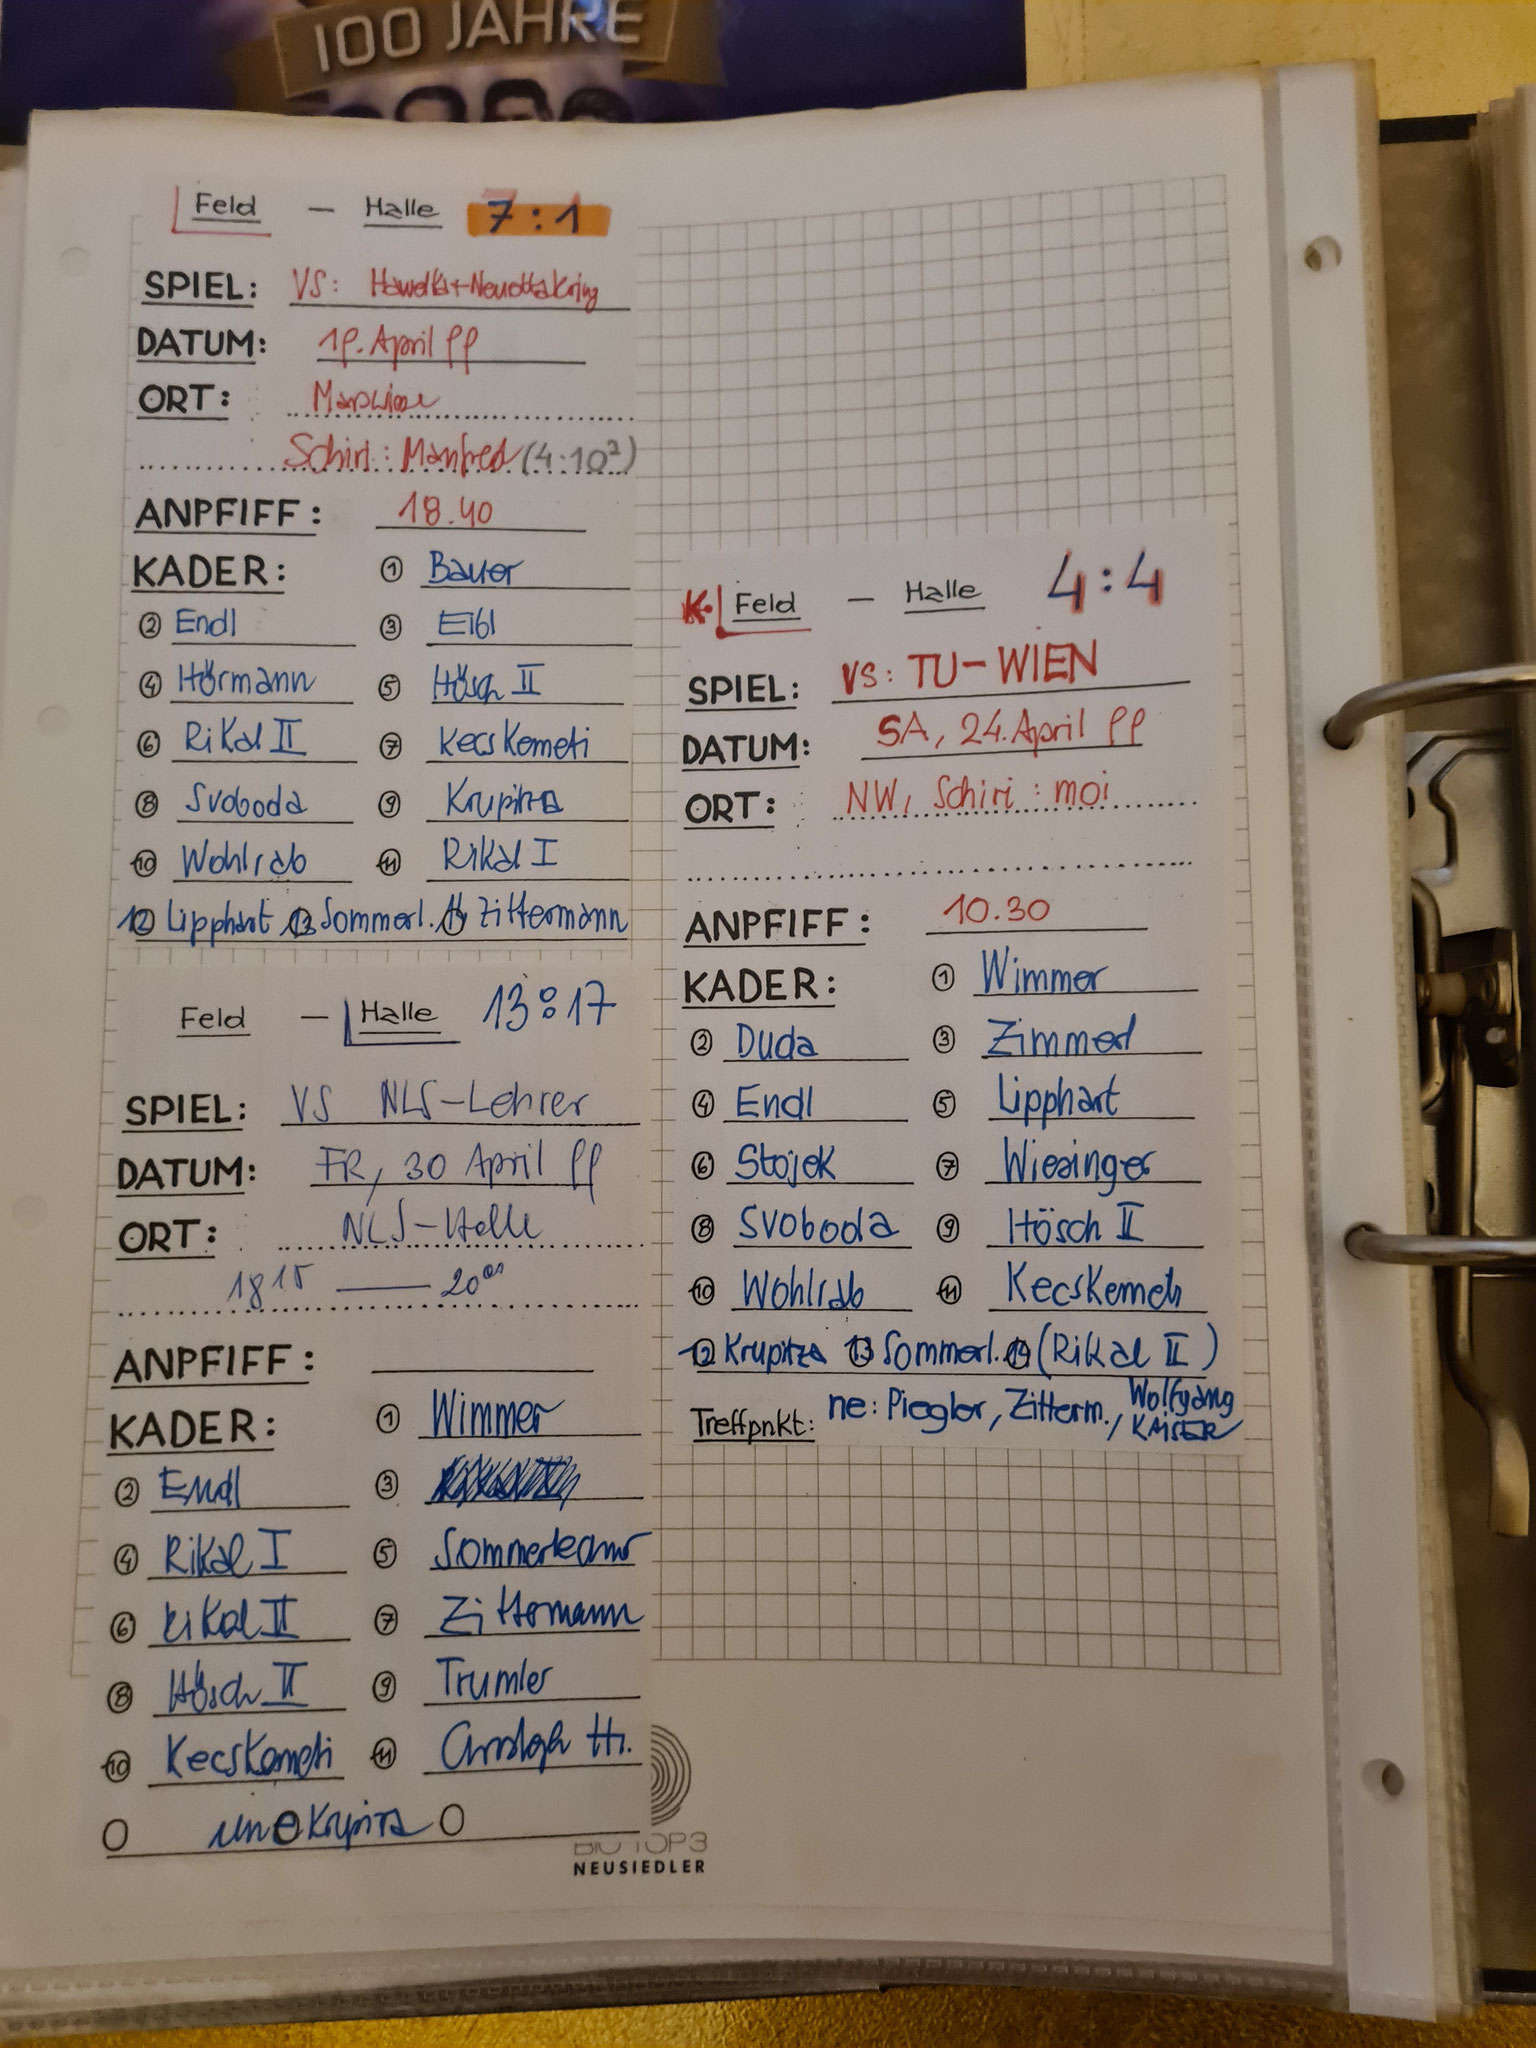 100 JAHRE
Feld — Halle 7:1
SPIEL: VS: Hawelka+Neuottakring
DATUM: 19. April 99
ORT: Marswiese
Schiri: Manfred (4:10²)
ANPFIFF: 18.40
KADER: ① Bauer
② Endl ③ Eibl
④ Hörmann ⑤ Hösch II
⑥ Rikal II ⑦ Kecskemeti
⑧ Svoboda ⑨ Krupitza
⑩ Wohlrab ⑪ Rikal I
⑫ Lipphart ⑬ Sommerl. ⑭ Zittermann
Feld — Halle 13:17
SPIEL: VS NLS-Lehrer
DATUM: FR, 30 April 99
ORT: NLS-Halle
18 15 — 20 00
ANPFIFF:
KADER: ① Wimmer
② Endl ③
④ Rikal I ⑤
⑥ Rikal II ⑦ Zittermann
⑧ Hösch II ⑨ Trumler
⑩ Kecskemeti ⑪
Krupitza
K. Feld — Halle 4:4
SPIEL: VS: TU-WIEN
DATUM: SA, 24. April 99
ORT: NW, Schiri: moi
ANPFIFF: 10.30
KADER: ① Wimmer
② Duda ③ Zimmerl
④ Endl ⑤ Lipphart
⑥ Stojek ⑦ Wiesinger
⑧ Svoboda ⑨ Hösch II
⑩ Wohlrab ⑪ Kecskemeti
⑫ Krupitza ⑬ Sommerl. ⑭ (Rikal II)
Treffpnkt: ne: Piegler, Zitterm., Wolfgang
KAISER
BIO TOP3
NEUSIEDLER